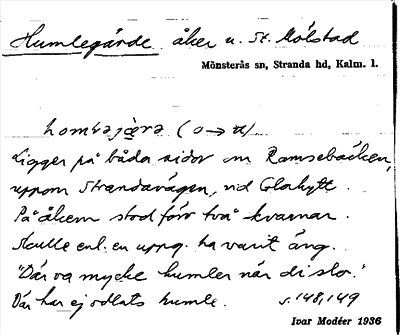 Humlegärde åker u. St. Mölstad
Mönsterås sn, Stranda hd, Kalm. l.
(o→u)
Ligger på båda sidor om Ramsebäcken,
uppom Strandavägen, vid Glahytt.
På åkern stod förr två kvarnar.
Skulle enl. en uppg. ha varit äng.
"Där va mycke humler när di slor."
Där har ej odlats humle. s. 148, 149
Ivar Modéer 1936